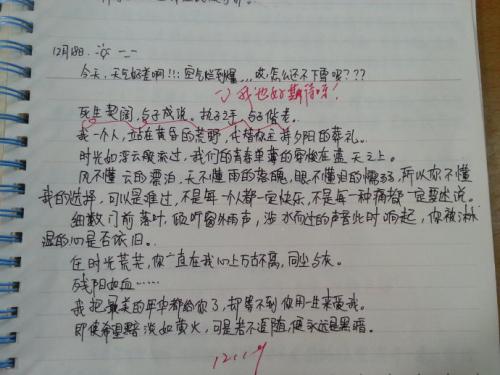 12月18日. 一二
今天,天气好差啊!!!空气烂到爆...,哎,怎么还不下雪呢???
我也好期待呀!
死生契阔,与子成说。执子之手,与子偕老。
我一个人,站在黄昏的荒野,代替你主持夕阳的葬礼。
时光如浮云飘流过,我们的青春单薄的穿梭在蓝天之上。
风不懂云的漂泊,天不懂雨的落魄,眼不懂泪的懦弱,所以你不懂
我的选择,可以是难过,不是每一个人都一定快乐,不是每一种痛都一定要述说。
细数门前落叶,倾听窗外雨声,涉水而过的声音此时响起,你被淋
湿的心是否依旧。
任时光荒芜,你一直在我心上万古不离,同尘与灰。
残阳如血……
我把最美的年华都给你了,却等不到你用一生来爱我。
即使希望黯淡如萤火,可是若不追随,便永远是黑暗。
12.19